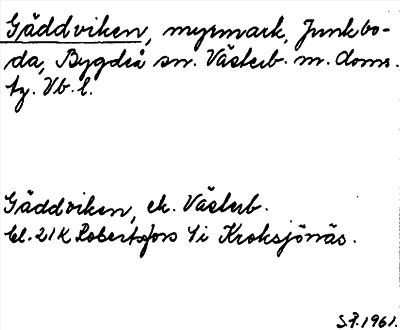 Gäddviken, myrmark, Junkbo-
da, Bygdeå sn. Västerb. m. doms.
ty. Vb. l.
Gäddviken, ek. Västerb.
bl. 21K Robertsfors 4i Kroksjönäs.
S.F. 1961.